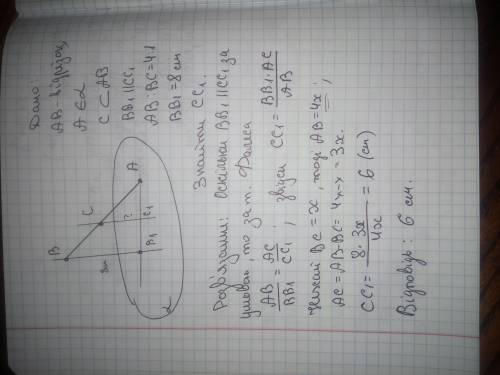 Дано:
AB - відрізок,
A ∈ α
C ⊂ AB
BB₁ || CC₁
AB : BC = 4:1
BB₁ = 8 см
B
C
A
8см
?
B₁
C₁
α
Знайти CC₁.
Розв'язання: Оскільки BB₁ || CC₁ за
умовою, то за т. Фалеса
AB/BB₁ = AC/CC₁ ; звідси CC₁ = BB₁·AC/AB
Нехай BC = x, тоді AB = 4x ;
AC = AB-BC = 4x-x = 3x.
CC₁ = 8·3x/4x = 6 (см)
Відповідь: 6 см.